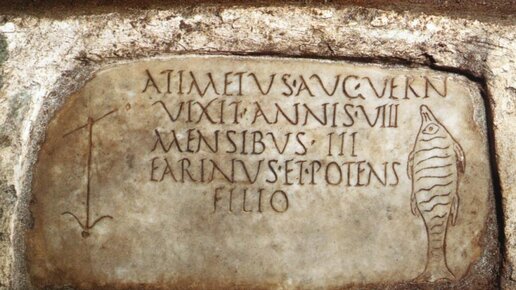 ATIMETUS·AUG·VERN
VIXIT·ANNIS·VIII
MENSIBUS·III
EARINUS·ET·POTENS
FILIO